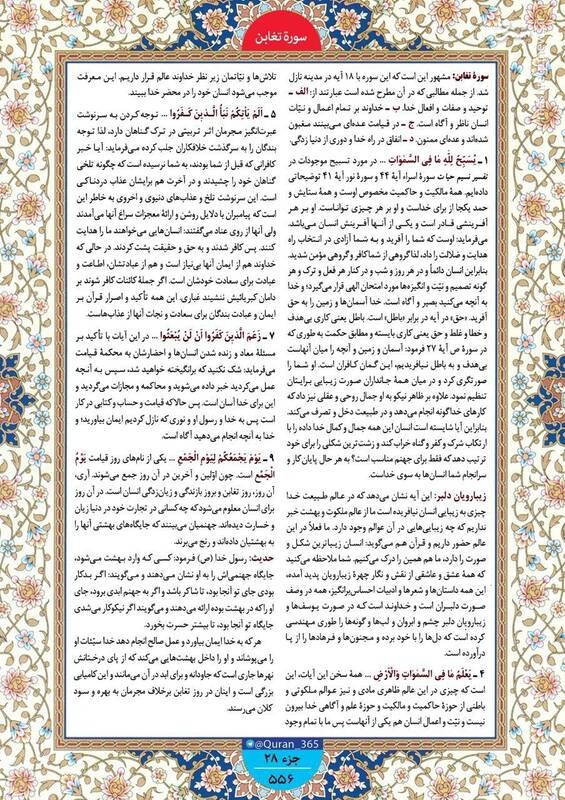 سورهٔ تغابن
سورهٔ تغابن: مشهور این است که این سوره با ۱۸ آیه در مدینه نازل
شد. از جمله مطالبی که در آن مطرح شده است عبارتند از: الف ـ
توحید و صفات و افعال خدا. ب ـ خداوند بر تمام اعمال و نیّات
انسان ناظر و آگاه است. ج ـ در قیامت عده‌ای می‌بینند مغبون
شده‌اند و عده‌ای ممنون. د ـ انفاق در راه خدا و دوری از دنیا زدگی.
۱ ـ یُسَبِّحُ لِلّٰهِ مَا فِی السَّمٰوَاتِ ... در مورد تسبیح موجودات در
تفسیر نسیم حیات سورهٔ اسراء آیهٔ ۴۴ و سورهٔ نور آیهٔ ۴۱ توضیحاتی
داده‌ایم. همهٔ مالکیت و حاکمیت مخصوص اوست و همهٔ ستایش و
حمد یکجا از برای خداست و او بر هر چیزی تواناست. او بر هر
آفرینشی قادر است و یکی از آنها آفرینش انسان می‌باشد.
می‌فرماید: اوست که شما را آفرید و به شما آزادی در انتخاب راه
هدایت و ضلالت را داد، لذا گروهی از شما کافر و گروهی مؤمن شدید.
بنابراین انسان دائماً و در هر روز و شب و در کنار هر فعل و ترک و هر
گونه تصمیم و نیّت و انگیزه‌ها مورد امتحان الهی قرار می‌گیرد؛ و خدا
به آنچه می‌کنید بصیر و آگاه است. خدا آسمان‌ها و زمین را به حق
آفرید. «حق» در آیه در برابر «باطل» است. باطل یعنی کاری بی‌هدف
و خطا و غلط و حق یعنی کاری بایسته و مطابق حکمت به طوری که
در سورهٔ ص آیهٔ ۲۷ فرمود: آسمان و زمین و آنچه را میان آنهاست
بی‌هدف و به باطل نیافریدیم، این گمان کافران است. او شما را
صورتگری کرد و در میان همهٔ جانداران صورت زیبایی برایتان
تنظیم نمود. علاوه بر ظاهر نیکو به او جمال روحی و عقلی نیز داد که
کارهای خداگونه انجام می‌دهد و در طبیعت دخل و تصرف می‌کند.
بنابراین آیا شایسته است انسان این همه جمال و کمال خدا داده را با
ارتکاب شرک و کفر و گناه خراب کند و زشت‌ترین شکلی را برای خود
ترتیب دهد که فقط برای جهنم مناسب است؟ به هر حال پایان کار و
سرانجام شما انسان‌ها به سوی خداست.
زیبارویان دلبر: این آیه نشان می‌دهد که در عالم طبیعت خدا
چیزی به زیبایی انسان نیافریده است ما از عالم ملکوت و بهشت خبر
نداریم که چه زیبایی‌هایی در آن عوالم وجود دارد. ما فعلاً در این
عالم حضور داریم و قرآن هم می‌گوید: انسان زیباترین شکل و
صورت را دارد، ما هم همین را درک می‌کنیم. شما ملاحظه می‌کنید
که همهٔ عشق و عاشقی از نقش و نگار چهرهٔ زیبارویان پدید آمده،
این همه داستان‌ها و شعرها و ادبیات احساس‌برانگیز، همه در وصف
صورت دلبران است و خداوند است که در صورت یوسف‌ها و
زیبارویان دلبر چشم و ابروان و لب‌ها و گونه‌ها را طوری مهندسی
کرده است که دل‌ها را با خود برده و مجنون‌ها و فرهادها را از پا
درآورده است.
۴ ـ یَعْلَمُ مَا فِی السَّمٰوَاتِ وَالْأَرْضِ ... همهٔ سخن این آیات، این
است که چیزی در این عالم ظاهری مادی و نیز عوالم ملکوتی و
باطنی از حوزهٔ حاکمیت و مالکیت و حوزهٔ علم و آگاهی خدا بیرون
نیست و نیّت و اعمال انسان هم یکی از آنهاست پس ما با تمام وجود
تلاش‌ها و نیّاتمان زیر نظر خداوند عالم قرار داریم. این معرفت
موجب می‌شود انسان خود را در محضر خدا ببیند.
۵ ـ أَلَمْ یَأْتِکُمْ نَبَأُ الَّذِینَ کَفَرُوا ... توجه کردن به سرنوشت
عبرت‌انگیز مجرمان اثر تربیتی در ترک گناهان دارد، لذا توجه
بندگان را به سرگذشت خلافکاران جلب کرده می‌فرماید: آیا خبر
کافرانی که قبل از شما بودند، به شما نرسیده است که چگونه تلخی
گناهان خود را چشیدند و در آخرت هم برایشان عذاب دردناکی
است. این سرنوشت تلخ و عذاب‌های دنیوی و اخروی به خاطر این
است که پیامبران با دلایل روشن و ارائهٔ معجزات سراغ آنها می‌آمدند
ولی آنها از روی عناد می‌گفتند: انسان‌هایی می‌خواهند ما را هدایت
کنند. پس کافر شدند و به حق و حقیقت پشت کردند. در حالی که
خداوند هم از ایمان آنها بی‌نیاز است و هم از عبادتشان، اطاعت و
عبادت برای سعادت خودشان است. اگر جملهٔ کائنات کافر شوند بر
دامان کبریائیش ننشیند غباری. این همه تأکید و اصرار قرآن بر
ایمان و عبادت بندگان برای سعادت و نجات آنها از عذاب‌هاست.
۷ ـ زَعَمَ الَّذِینَ کَفَرُوا أَنْ لَنْ یُبْعَثُوا ... در این آیات با تأکید بر
مسئلهٔ معاد و زنده شدن انسان‌ها و احضارشان به محکمهٔ قیامت
می‌فرماید: شک نکنید که برانگیخته خواهید شد، سپس به آنچه
عمل می‌کردید خبر داده می‌شوید و محاکمه و مجازات می‌گردید و
این برای خدا آسان است. پس حالا که قیامت و حساب و کتابی در کار
است پس به خدا و رسول او و نوری که نازل کردیم ایمان بیاورید؛ و
خدا به آنچه انجام می‌دهید آگاه است.
۹ ـ یَوْمَ یَجْمَعُکُمْ لِیَوْمِ الْجَمْعِ ... یکی از نام‌های روز قیامت یَوْمُ
الْجَمْعِ است. چون اوّلین و آخرین در آن روز جمع می‌شوند. آری،
آن روز، روز تغابن و بروز بازندگی و زیان‌زدگی انسان است. در آن روز
برای انسان معلوم می‌شود که چه‌کسانی در تجارت خود در دنیا زیان
و خسارت دیده‌اند. جهنمیان می‌بینند که جایگاه‌های بهشتی آنها را
به بهشتیان داده‌اند و رنج می‌برند.
حدیث: رسول خدا (ص) فرمود: کسی که وارد بهشت می‌شود،
جایگاه جهنمی‌اش را به او نشان می‌دهند و می‌گویند: اگر بدکار
بودی جای تو آنجا بود، تا شاکر باشد و اگر به جهنم ابدی برود، جای
او را که در بهشت بوده ارائه می‌دهند و می‌گویند اگر نیکوکار می‌شدی
جایگاه تو آنجا بود، تا بیشتر حسرت بخورد.
هر که به خدا ایمان بیاورد و عمل صالح انجام دهد خدا سیّئات او
را می‌پوشاند و او را داخل بهشت‌هایی می‌کند که از پای درختانش
نهرها جاری است که جاودانه و برای ابد در آن می‌مانند و این کامیابی
بزرگی است و اینان در روز تغابن برخلاف مجرمان به بهره و سود
کلان می‌رسند.
@Quran_365
جزء ۲۸
۵۵۶